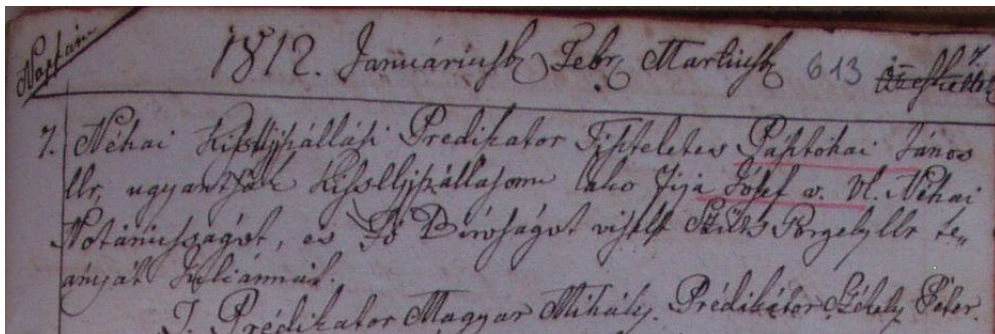 Napjai
1812. Januáriusb. Febr. Martiusb. 613
7. Néhai Kisújszállási Prédikátor Tiszteletes Pásztohai János
Ur, ugyantsak Kisújszállásonn lakó Fija Jósef v. vl. Néhai
Nótáriusságot, es Fő Biróságot viselt Szűts Gergely Ur le„
ányát Juliánnát.
T. Prédikátor Magyar Mihály. Prédikátor Péter.